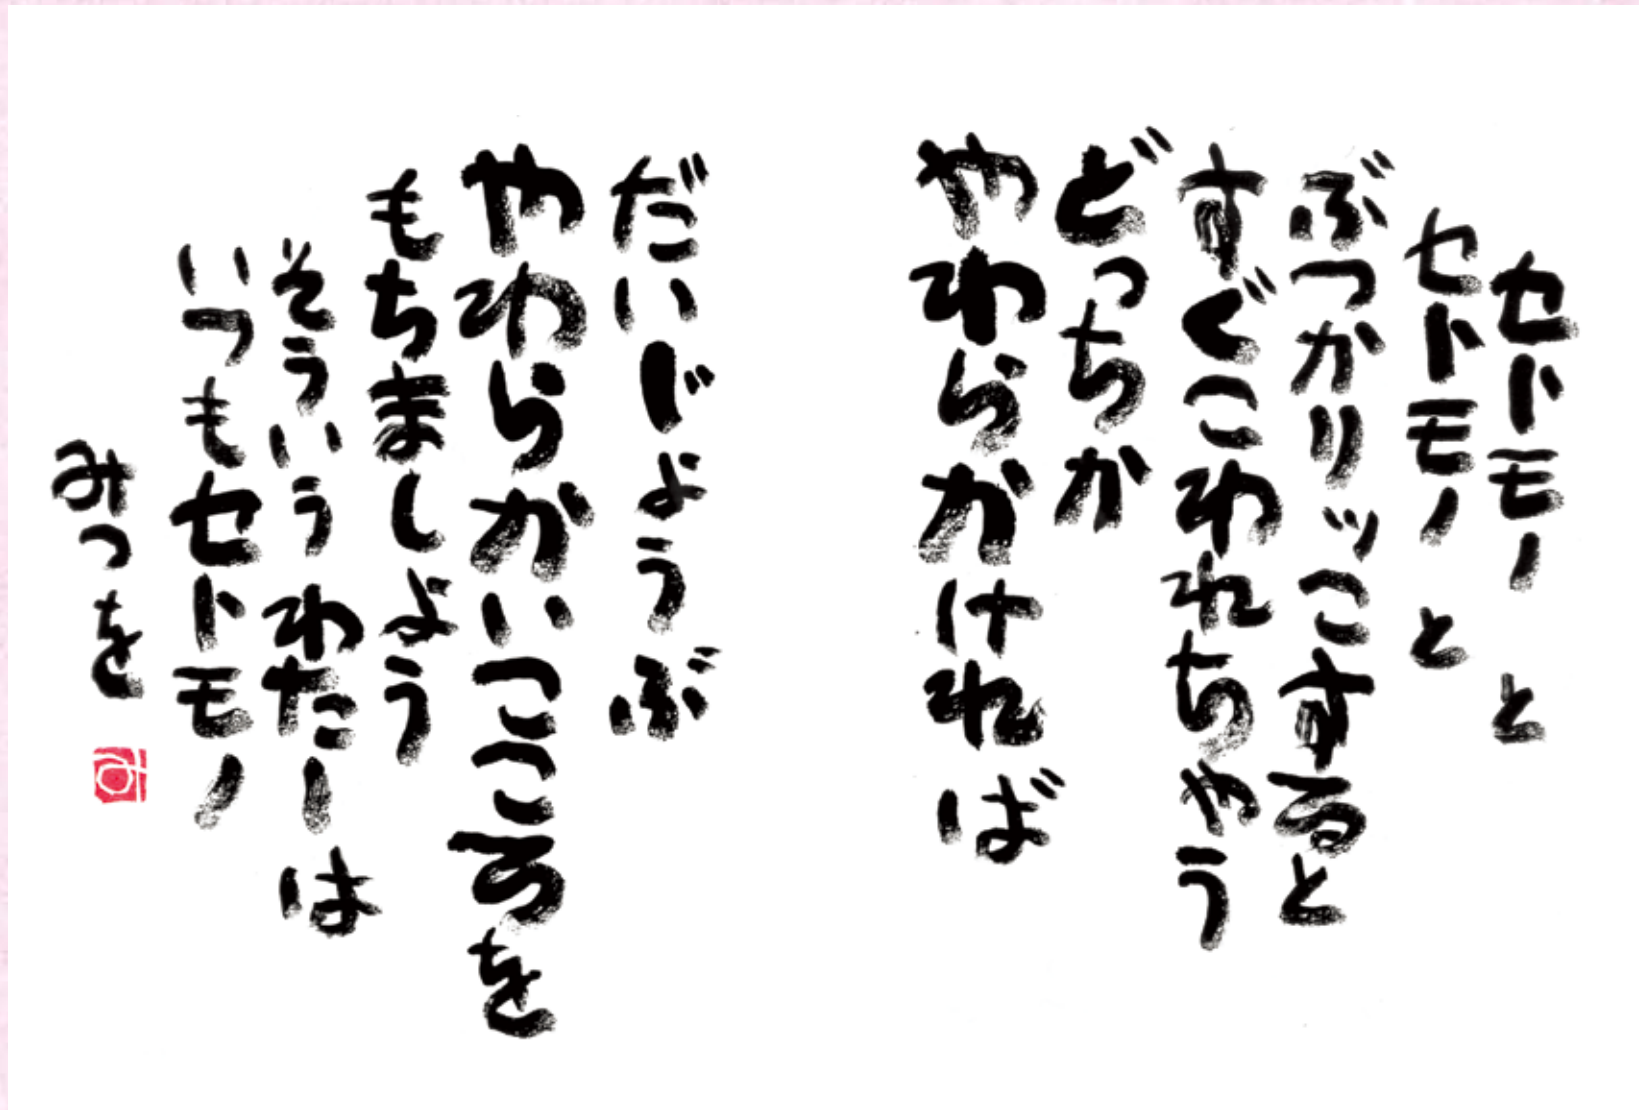 セトモノと
セトモノと
ぶつかりッこすると
すぐこわれちゃう
どっちか
やわらかければ
だいじょうぶ
やわらかいこころを
もちましょう
そういうわたしは
いつもセトモノ
みつを
み